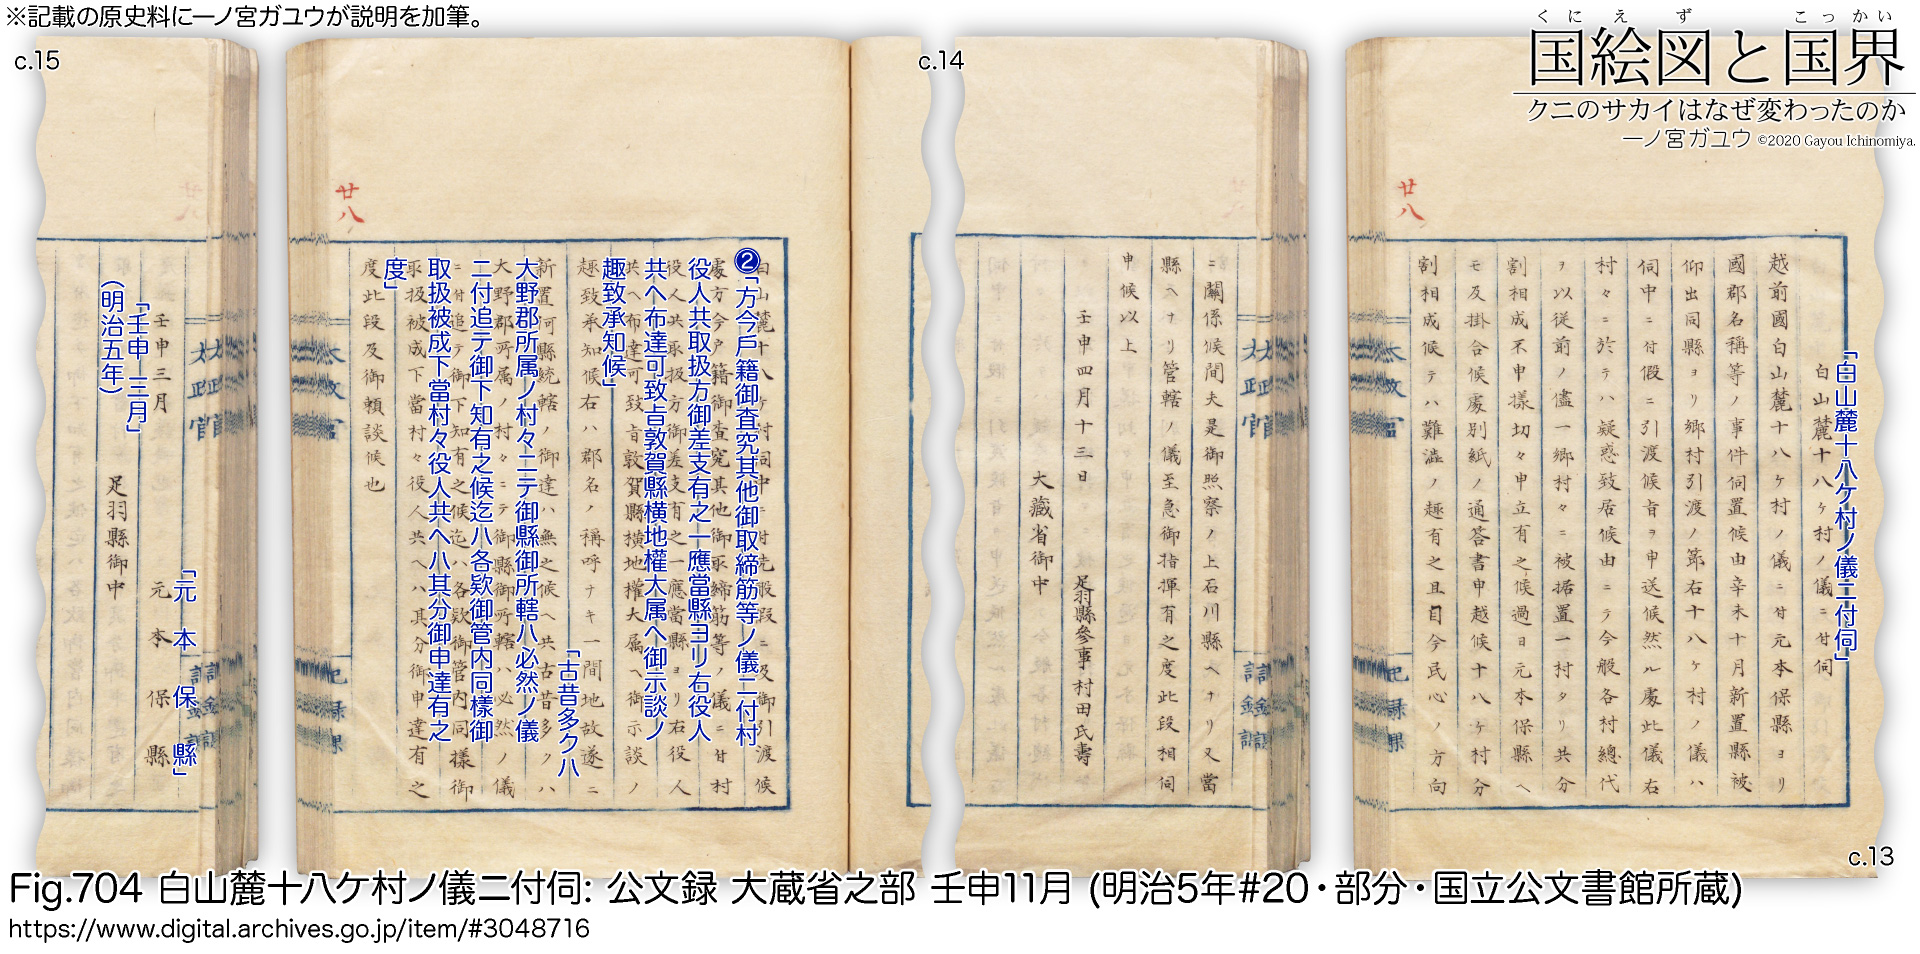 ※記載の原史料に一ノ宮ガユウが説明を加筆。
くにえず こっかい
国絵図と国界
クニのサカイはなぜ変わったのか
一ノ宮ガユウ ©2020 Gayou Ichinomiya.
c.13
「白山麓十八ケ村ノ儀ニ付伺」
廿八
白山麓十八ケ村ノ儀ニ付伺
越前國白山麓十八ケ村ノ儀ニ付元本保縣ヨリ
國郡名稱等ノ事件伺置候由辛未十月新置縣被
仰出同縣ヨリ郷村引渡ノ節右十八ケ村ノ儀ハ
伺中ニ付假ニ引渡候旨ヲ申送候然ル處此儀右
村々ニ於テハ疑惑致居候由ニテ今般各村總代
ヲ以従前ノ儘一郷村々ニ被据置一村タリ共分
割相成不申様切々申立有之候過日元本保縣ヘ
モ及掛合候處別紙ノ通答書申越候十八ケ村分
割相成候テハ難澁ノ趣有之且目今民心ノ方向
太政官
記録課
c.14
ニ關係候間夫是御照察ノ上石川縣ヘナリ又當
縣ヘナリ管轄ノ儀至急御指揮有之度此段相伺
申候以上
壬申四月十三日
足羽縣參事村田氏壽
大藏省御中
❷「方今戸籍御査究其他御取締筋等ノ儀ニ付村
役人共取扱方御差支有之一應當縣ヨリ右役人
共ヘ布達可致旨敦賀縣横地權大属ヘ御示談ノ
趣致承知候」
「古昔多クハ
大野郡所属ノ村々ニテ御縣御所轄ハ必然ノ儀
ニ付追テ御下知有之候迄ハ各欵御管内同様御
取扱被成下當村々役人共ヘハ其分御申達有之
度」
廿八
白山麓十八ケ村伺中ニ付先般假ニ及御引渡候
處方今戸籍御査究其他御取締筋等ノ儀ニ付村
役人共取扱方御差支有之一應當縣ヨリ右役人
共ヘ布達可致旨敦賀縣横地權大属ヘ御示談ノ
趣致承知候右ハ郡名ノ稱呼ナキ一間地故遂ニ
新置何縣統轄ノ御達ハ無之候ヘ共古昔多クハ
大野郡所属ノ村々ニテ御縣御所轄ハ必然ノ儀
ニ付追テ御下知有之候迄ハ各欵御管内同様御
取扱被成下當村々役人共ヘハ其分御申達有之
度此段及御頼談候也
c.15
「元本保縣」
元本保縣
「壬申三月」
(明治五年)
壬申三月
足羽縣御中
太政官
Fig.704 白山麓十八ケ村ノ儀ニ付伺: 公文録 大蔵省之部 壬申11月 (明治5年#20・部分・国立公文書館所蔵)
https://www.digital.archives.go.jp/item/#3048716